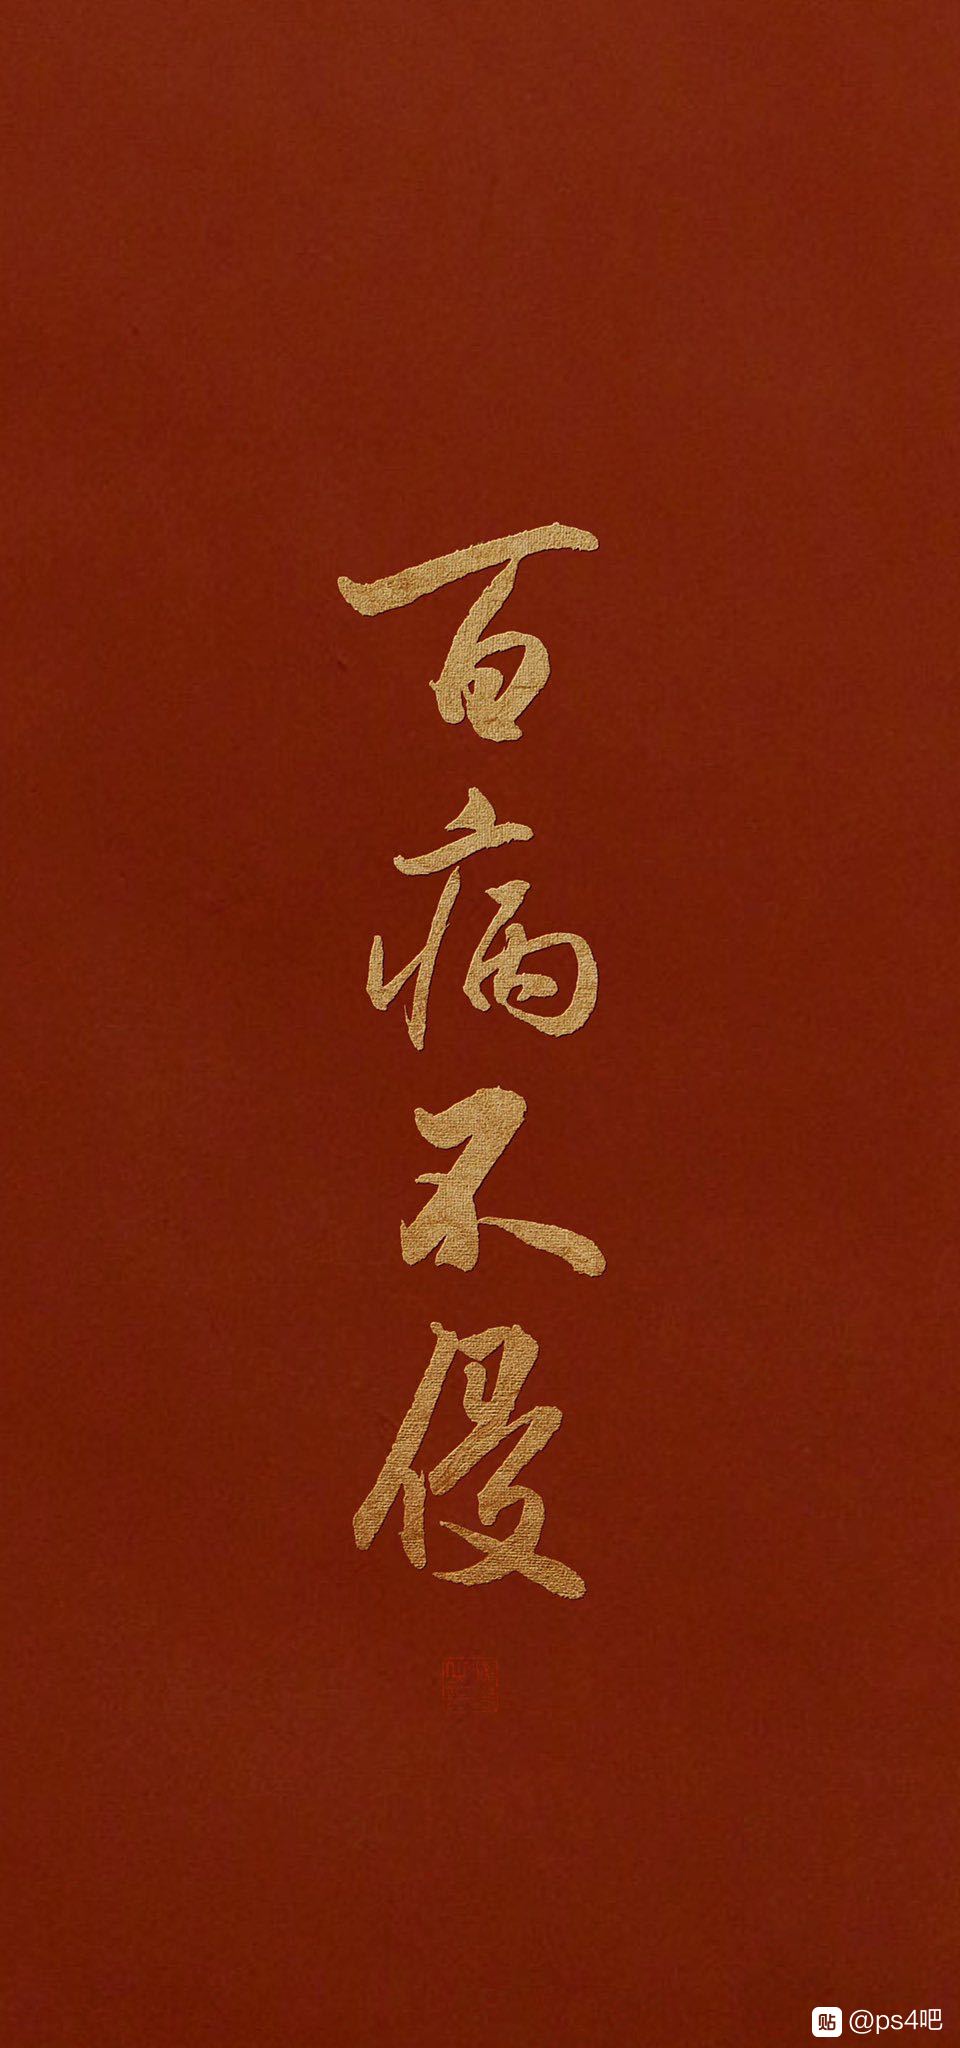 百病不侵
贴 @ps4吧